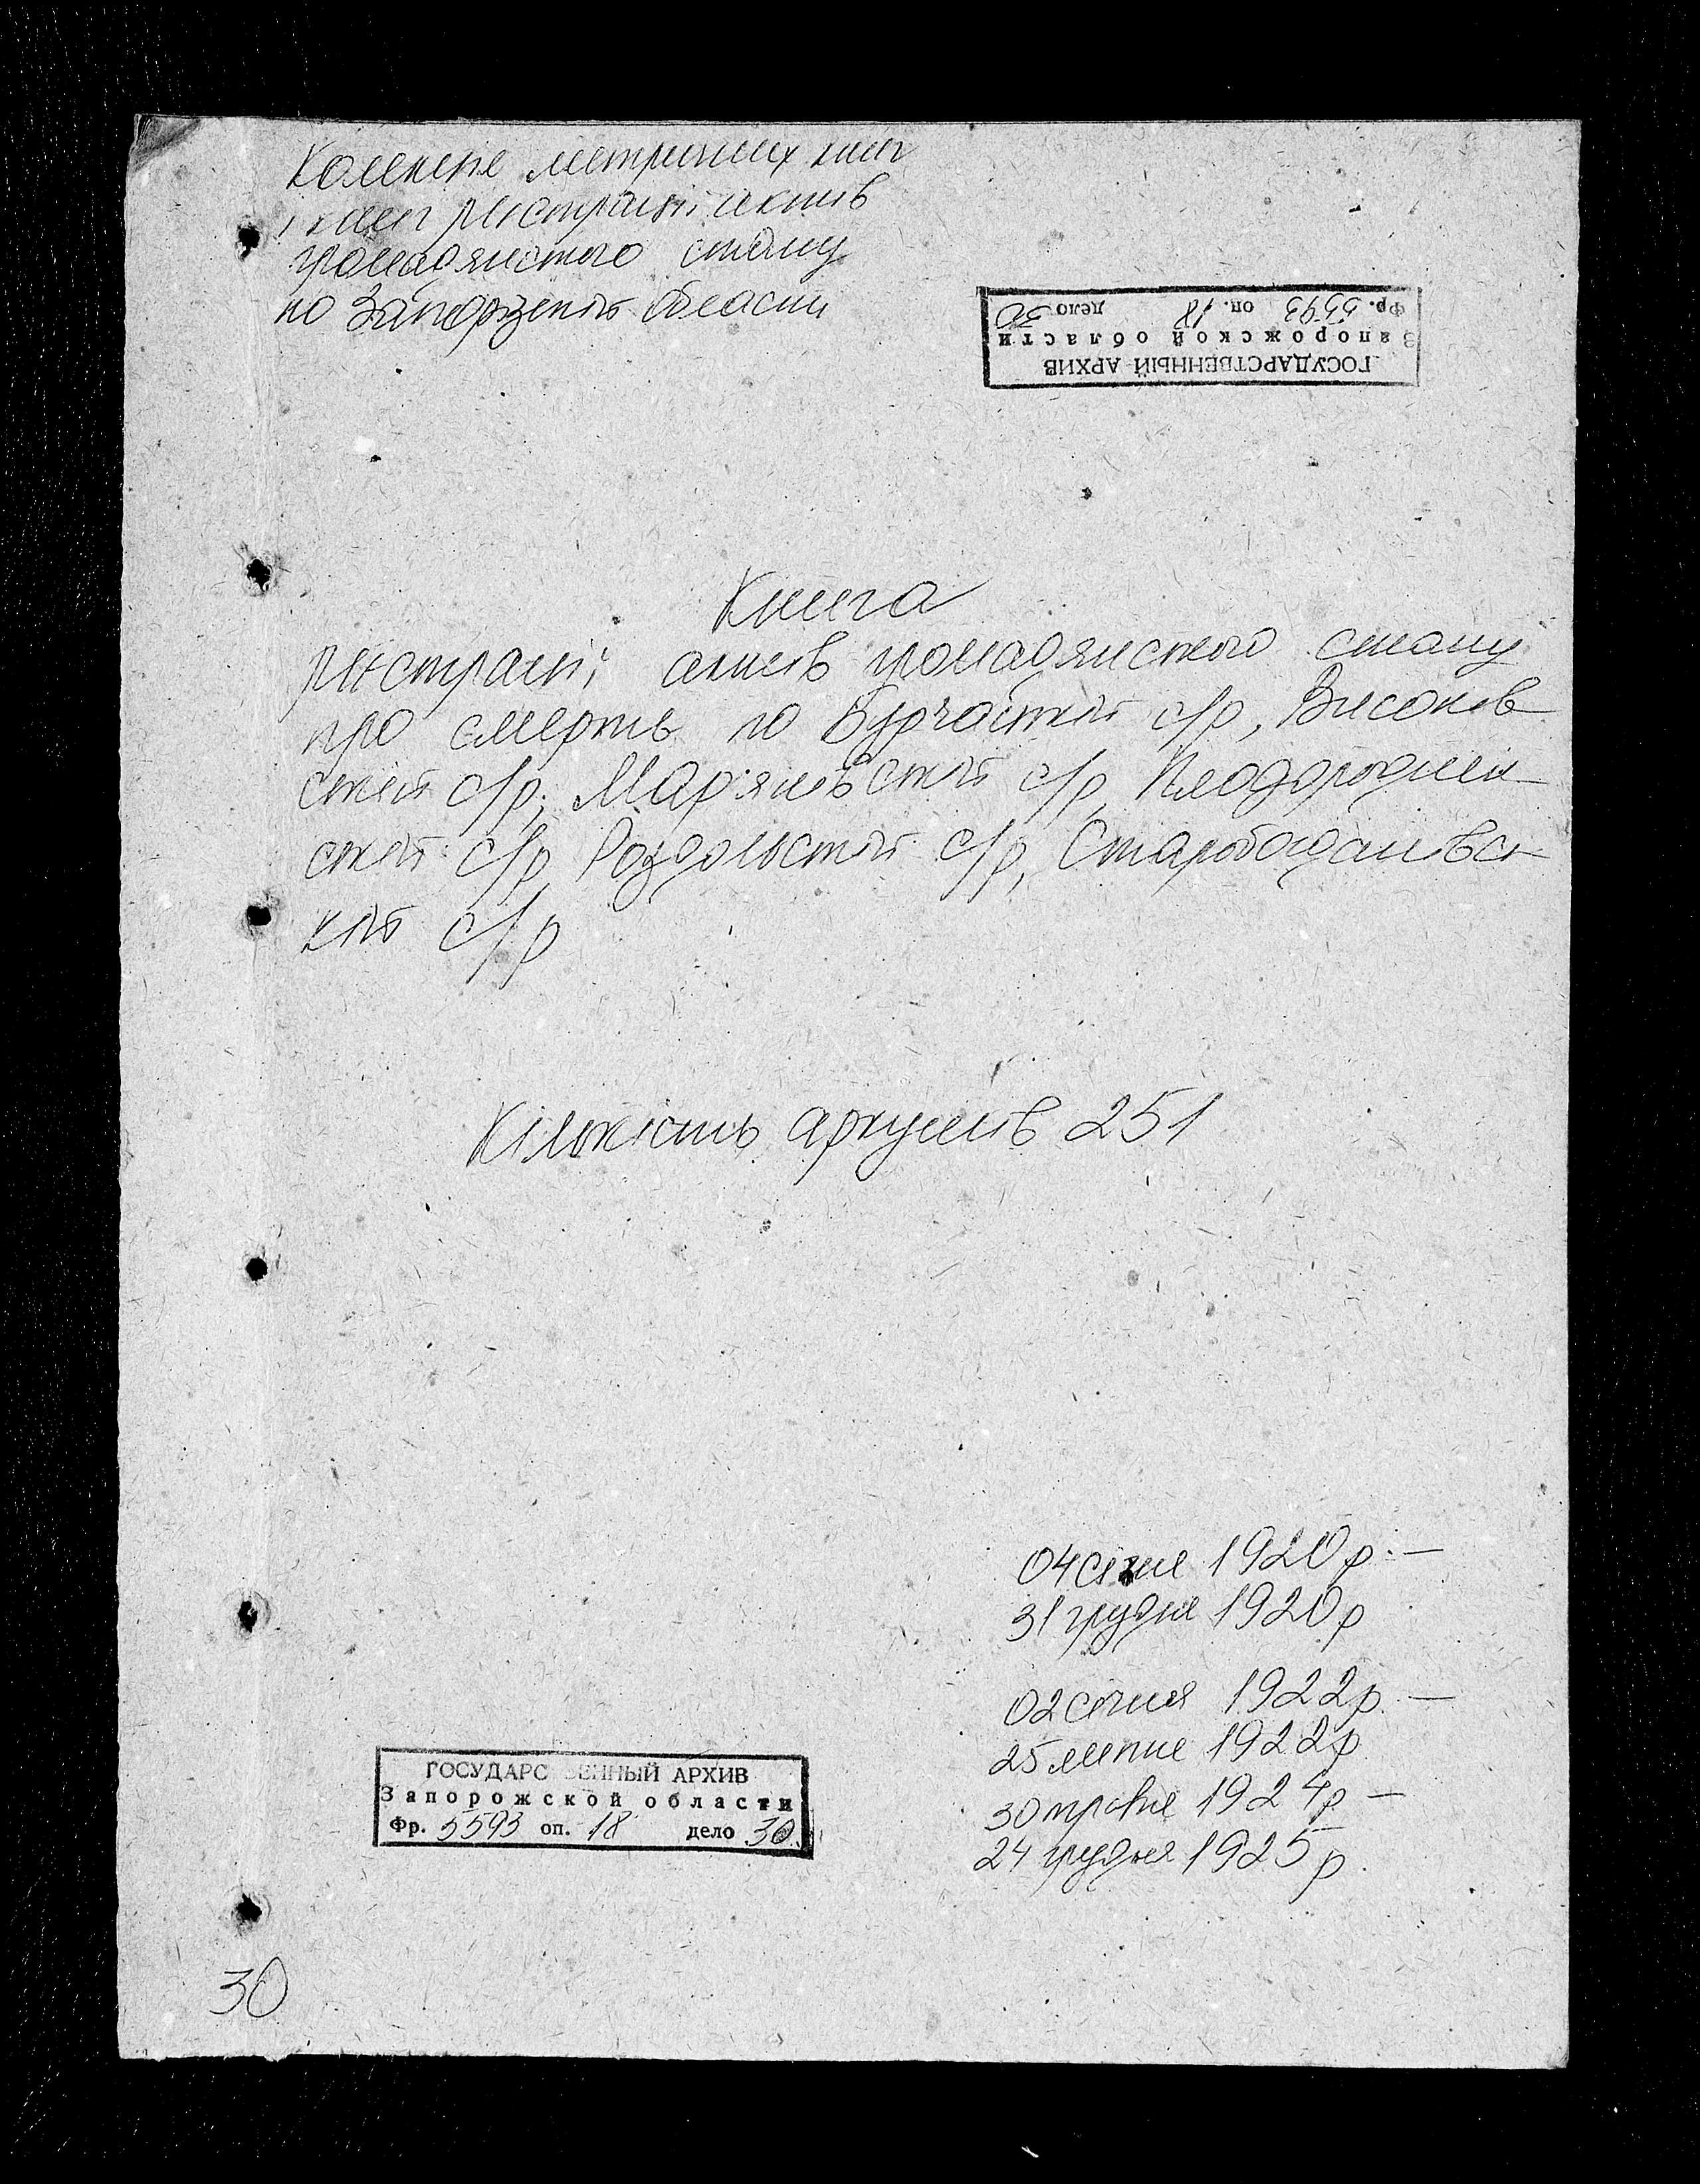 Колекція метричних книг
і книг реєстрації актів
громадянського стану
по Запорізькій області
ГОСУДАРСТВЕННЫЙ АРХИВ
Запорожской области
Фр. 5593 оп. 18 дело 30
Книга
реєстрації актів громадянського стану
про смерть по Бурчацькій с/р, Високів
ській с/р, Мар'янівській с/р, Плодородненсь
кій с/р, Роздольській с/р, Старобогданівсь
кій с/р
Кількість аркушів 251
04 січня 1920 р. —
31 грудня 1920 р
02 січня 1922 р. —
25 липня 1922 р
30 травня 1924 р —
24 грудня 1925 р.
ГОСУДАРС ВЕННЫЙ АРХИВ
Запорожской области
Фр. 5593 оп. 18 дело 30
30